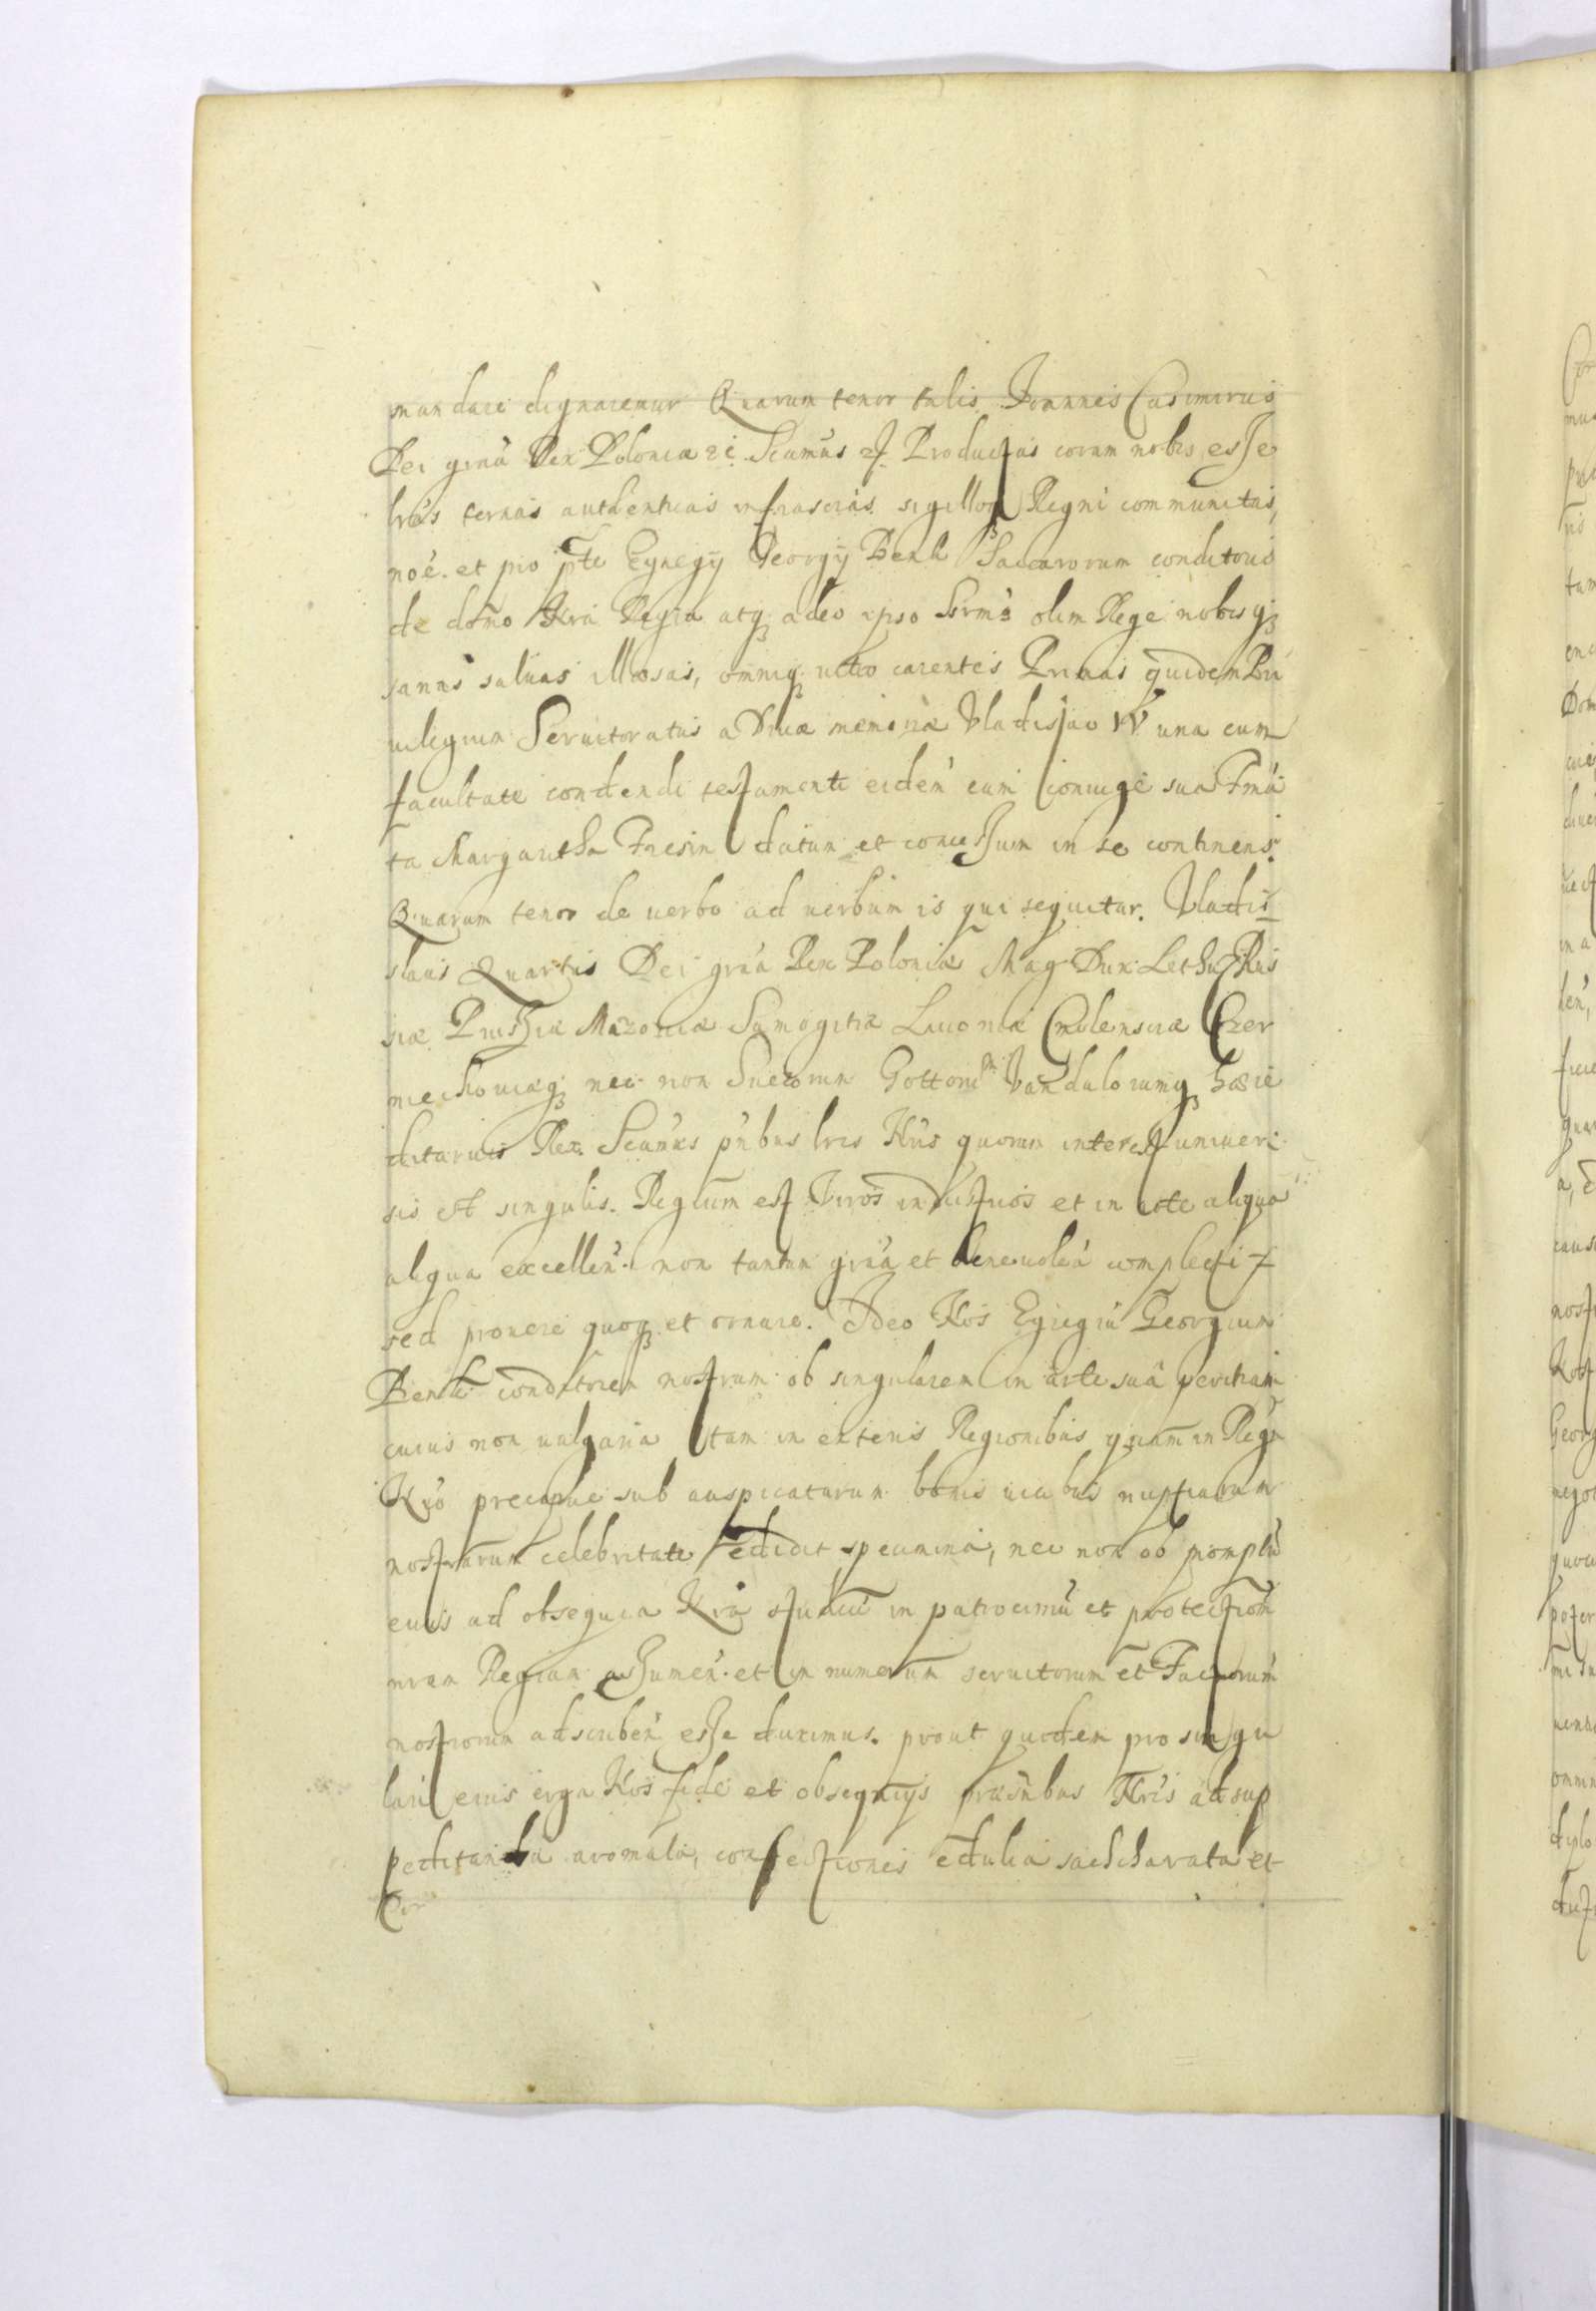 mandare dignaremur Quarum tenor talis Joannes Casimirus
Dei grã Rex Poloniæ &c. Scimus &. Productas coram nobis esse
lras ternas authenticas infrascrās sigillo Regni communitas,
noē. et pro pte Egregÿ Georgÿ Benk Saccarorum conditoris
de domo Nra Regia atq adeo ipso Sermo olim Rege nobis q
sanas saluas illæsas, omniq uitio carentes Primas quidem Pri
uilegium Seruitoratus a Diuæ memoriæ Vladislao IV una cum
facultate condendi testamenti eidem cum coniuge sua Fma
ta Margaretha Fresin datum et concessum in se continens.
Quarum tenor de uerbo ad uerbum is qui sequitur. Vladis
slaus Quartus Dei grã Rex Poloniæ Mag Dux Lithu Rus
siæ Prussiæ Mazoniæ Samogitiæ Liuoniæ Smolensciæ Czer
niechouiæq nec non Suecorum Gottorum Vandalorumq hære
ditarius Rex. Scimus pñbus lris Nris quorum interest uniuer
sis et singulis. Regium est Viros industrios et in arte aliqua
aliqua excellen. non tantum grã et beneuolẽa complecti
sed prouere quoq et ornare. Ideo Nos Egregiũ Georgium
Benk conditorem nostrum ob singularem in arte suâ peritiam
cuius non uulgaria tam in exteris Regionibus quam in Regn
Nro precipue sub auspicatarum bonis uubus nuptiarum
nostrarum celebritate edidit specimina, nec non ob promptu
euis ad obsequia Nra studiũ in patrociniũ et protectionẽ
nram Regiam assumeñ. et in numerum seruitorum et Factorum
nostrorum adscribeñ esse duximus. prout quidem pro singu
lari eius erga Nos fide et obsequiÿs præsñbus Nris ad sup
peditanda aromata, confectiones edulia sachcharata et
Con